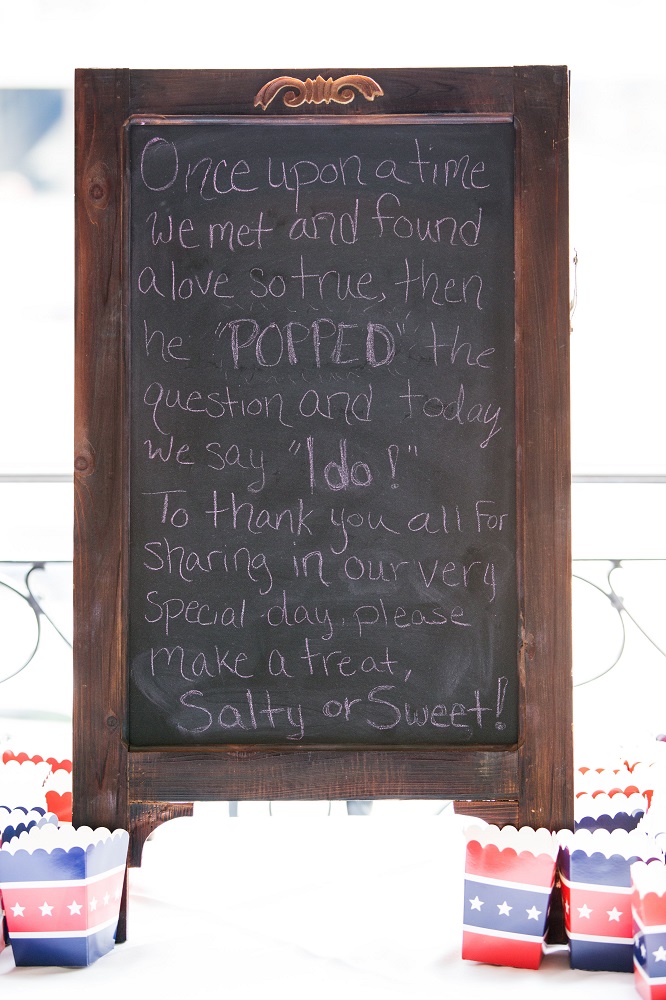 Once upon a time
we met and found
a love so true, then
he "POPPED" the
question and today
we say "I do!"
To thank you all for
sharing in our very
special day, please
make a treat,
Salty or Sweet!